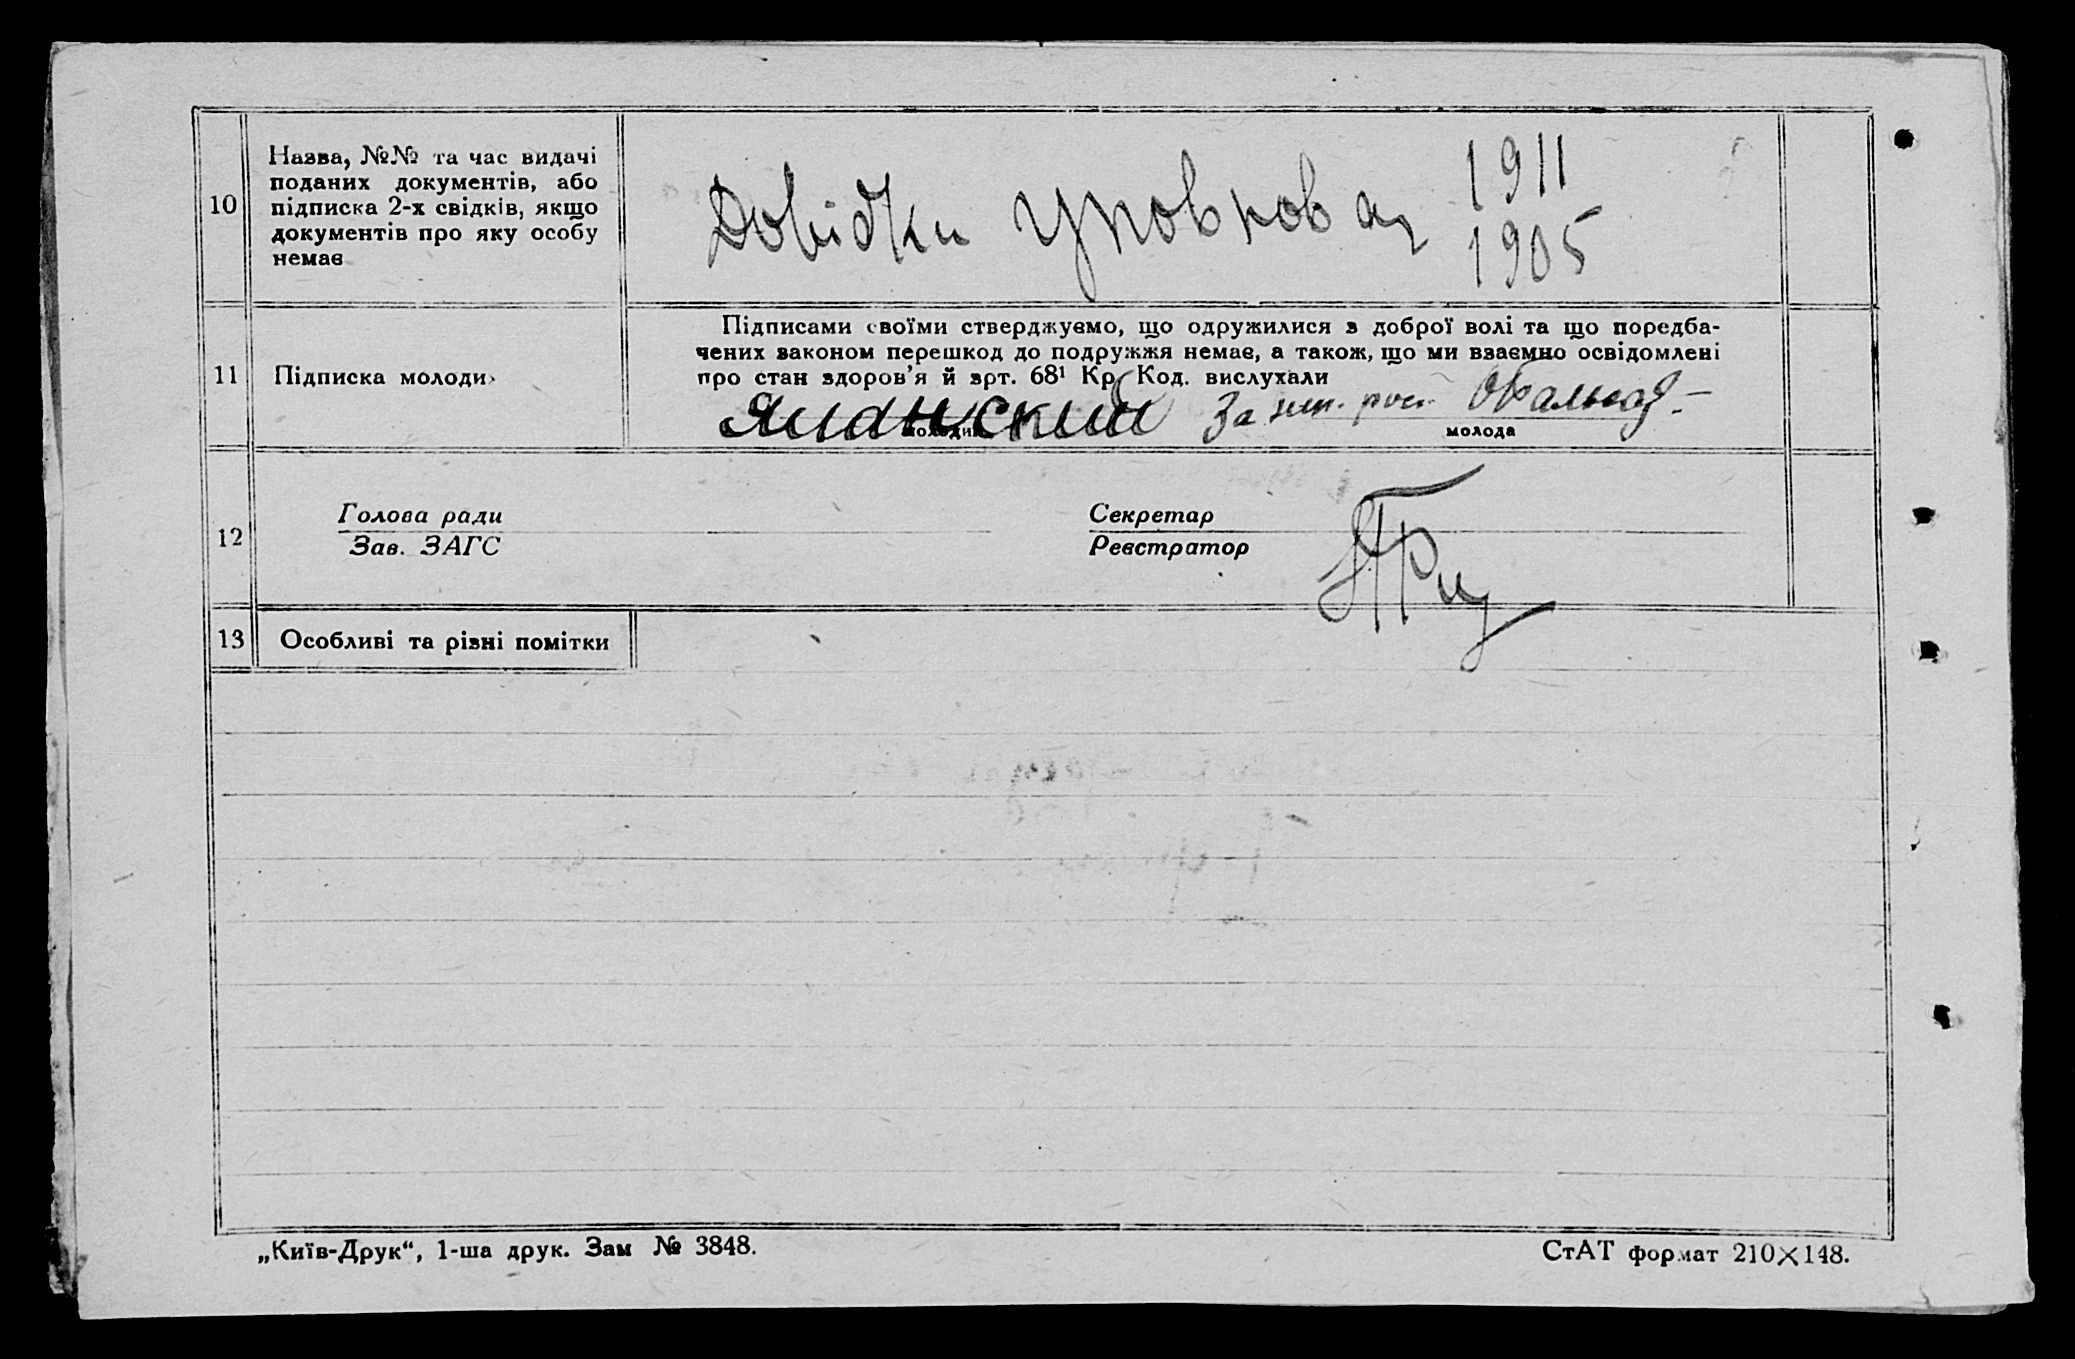 10
Назва, №№ та час видачі
поданих документів, або
підписка 2-х свідків, якщо
документів про яку особу
немає
Довідки
1911
1905
11
Підписка молоди
Підписами своїми стверджуємо, що одружилися з доброї волі та що поредба-
чених законом перешкод до подружжя немає, а також, що ми взаємно освідомлені
про стан здоров'я й арт. 68¹ Кр. Код. вислухали
За
молодий
молода
12
Голова ради
Зав. ЗАГС
Секретар
Реєстратор
13
Особливі та різні помітки
„Київ-Друк“, 1-ша друк. Зам № 3848.
СтАТ формат 210×148.